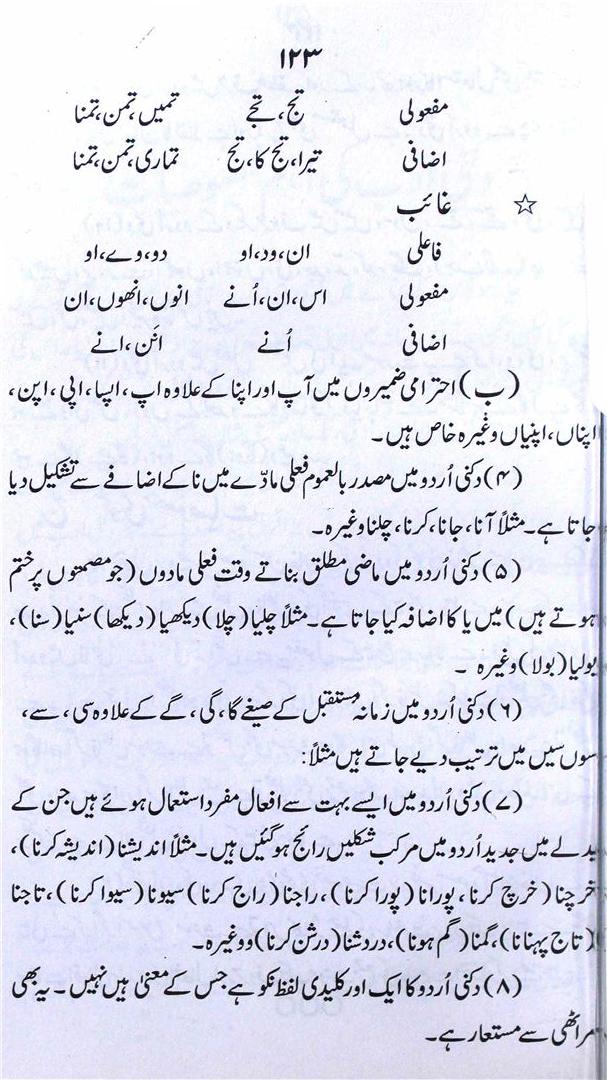 ۱۲۳
مفعولی تج، تجے تمیں، تمن، تمنا
اضافی تیرا، تج کا، تج تماری، تمن، تمنا
☆ غائب
فاعلی ان، ود، او دو، وے، او
مفعولی اس، ان، اُنے انوں، انھوں، ان
اضافی اُنے انَن، انے
(ب) احترامی ضمیروں میں آپ اور اپنا کے علاوہ اپ، اپسا، اپی، اپن،
اپناں، اپنیاں وغیرہ خاص ہیں۔
(۴) دکنی اُردو میں مصدر بالعموم فعلی مادّے میں نا کے اضافے سے تشکیل دیا
جاتا ہے۔ مثلاً آنا، جانا، کرنا، چلنا وغیرہ۔
(۵) دکنی اُردو میں ماضی مطلق بناتے وقت فعلی مادوں (جو مصمتوں پر ختم
ہوتے ہیں) میں یا کا اضافہ کیا جاتا ہے۔ مثلاً چلیا (چلا) دیکھیا (دیکھا) سنیا (سنا)،
بولیا (بولا) وغیرہ ۔
(۶) دکنی اُردو میں زمانہ مستقبل کے صیغے گا، گی، گے کے علاوہ سی، سے،
سوں سیں میں ترتیب دیے جاتے ہیں مثلاً:
(۷) دکنی اُردو میں ایسے بہت سے افعال مفرد استعمال ہوئے ہیں جن کے
بدلے میں جدید اُردو میں مرکب شکلیں رائج ہوگئیں ہیں۔ مثلاً اندیشنا (اندیشہ کرنا)،
خرچنا (خرچ کرنا، پورانا (پورا کرنا)، راجنا (راج کرنا) سیونا (سیوا کرنا)، تاجنا
(تاج پہنانا)، گمنا (گم ہونا)، دردشنا (درشن کرنا) ووغیرہ۔
(۸) دکنی اُردو کا ایک اور کلیدی لفظ نکو ہے جس کے معنیٰ ہیں نہیں ۔ یہ بھی
مراٹھی سے مستعار ہے۔